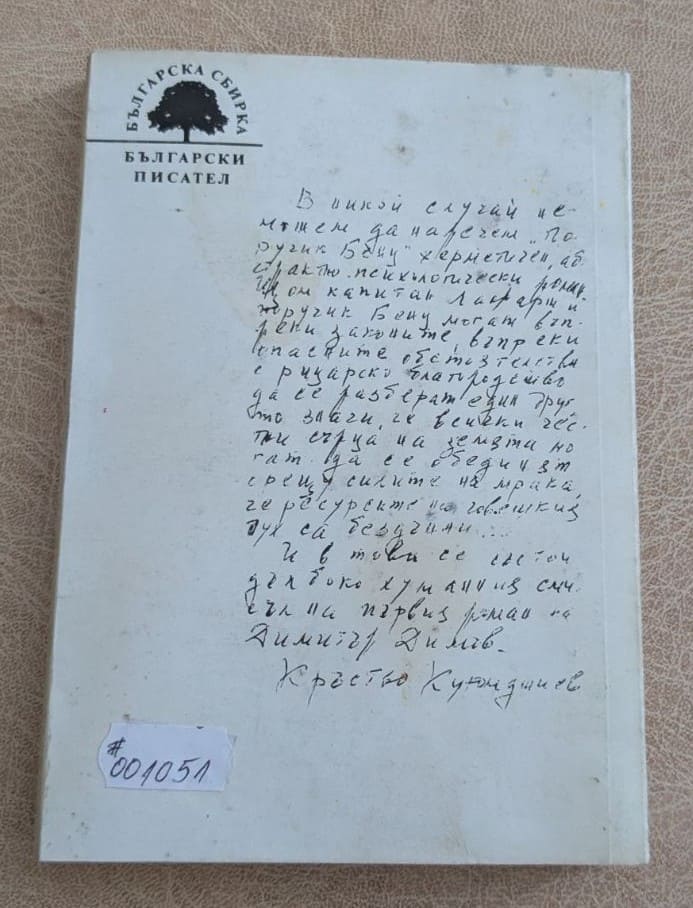 БЪЛГАРСКА СБИРКА
БЪЛГАРСКИ
ПИСАТЕЛ
В никой случай не-
можем да наречем „По-
ручик Бенц" херметичен, аб-
страктно-психологически роман.
Щом капитан Лафарж и
поручик Бенц могат въп-
реки законите, въпреки
опасните обстоятелства
с рицарско благородство
да се разберат един друг,
то значи, че всички чес-
тни сърца на земята мо-
гат да се обединят
срещу силите на мрака,
че ресурсите на човешкия
дух са безучини...
И в това се състои
дълбоко хуманния сми-
съл на първия роман на
Димитър Димов.
Кръстьо Куюмджиев
#
001051